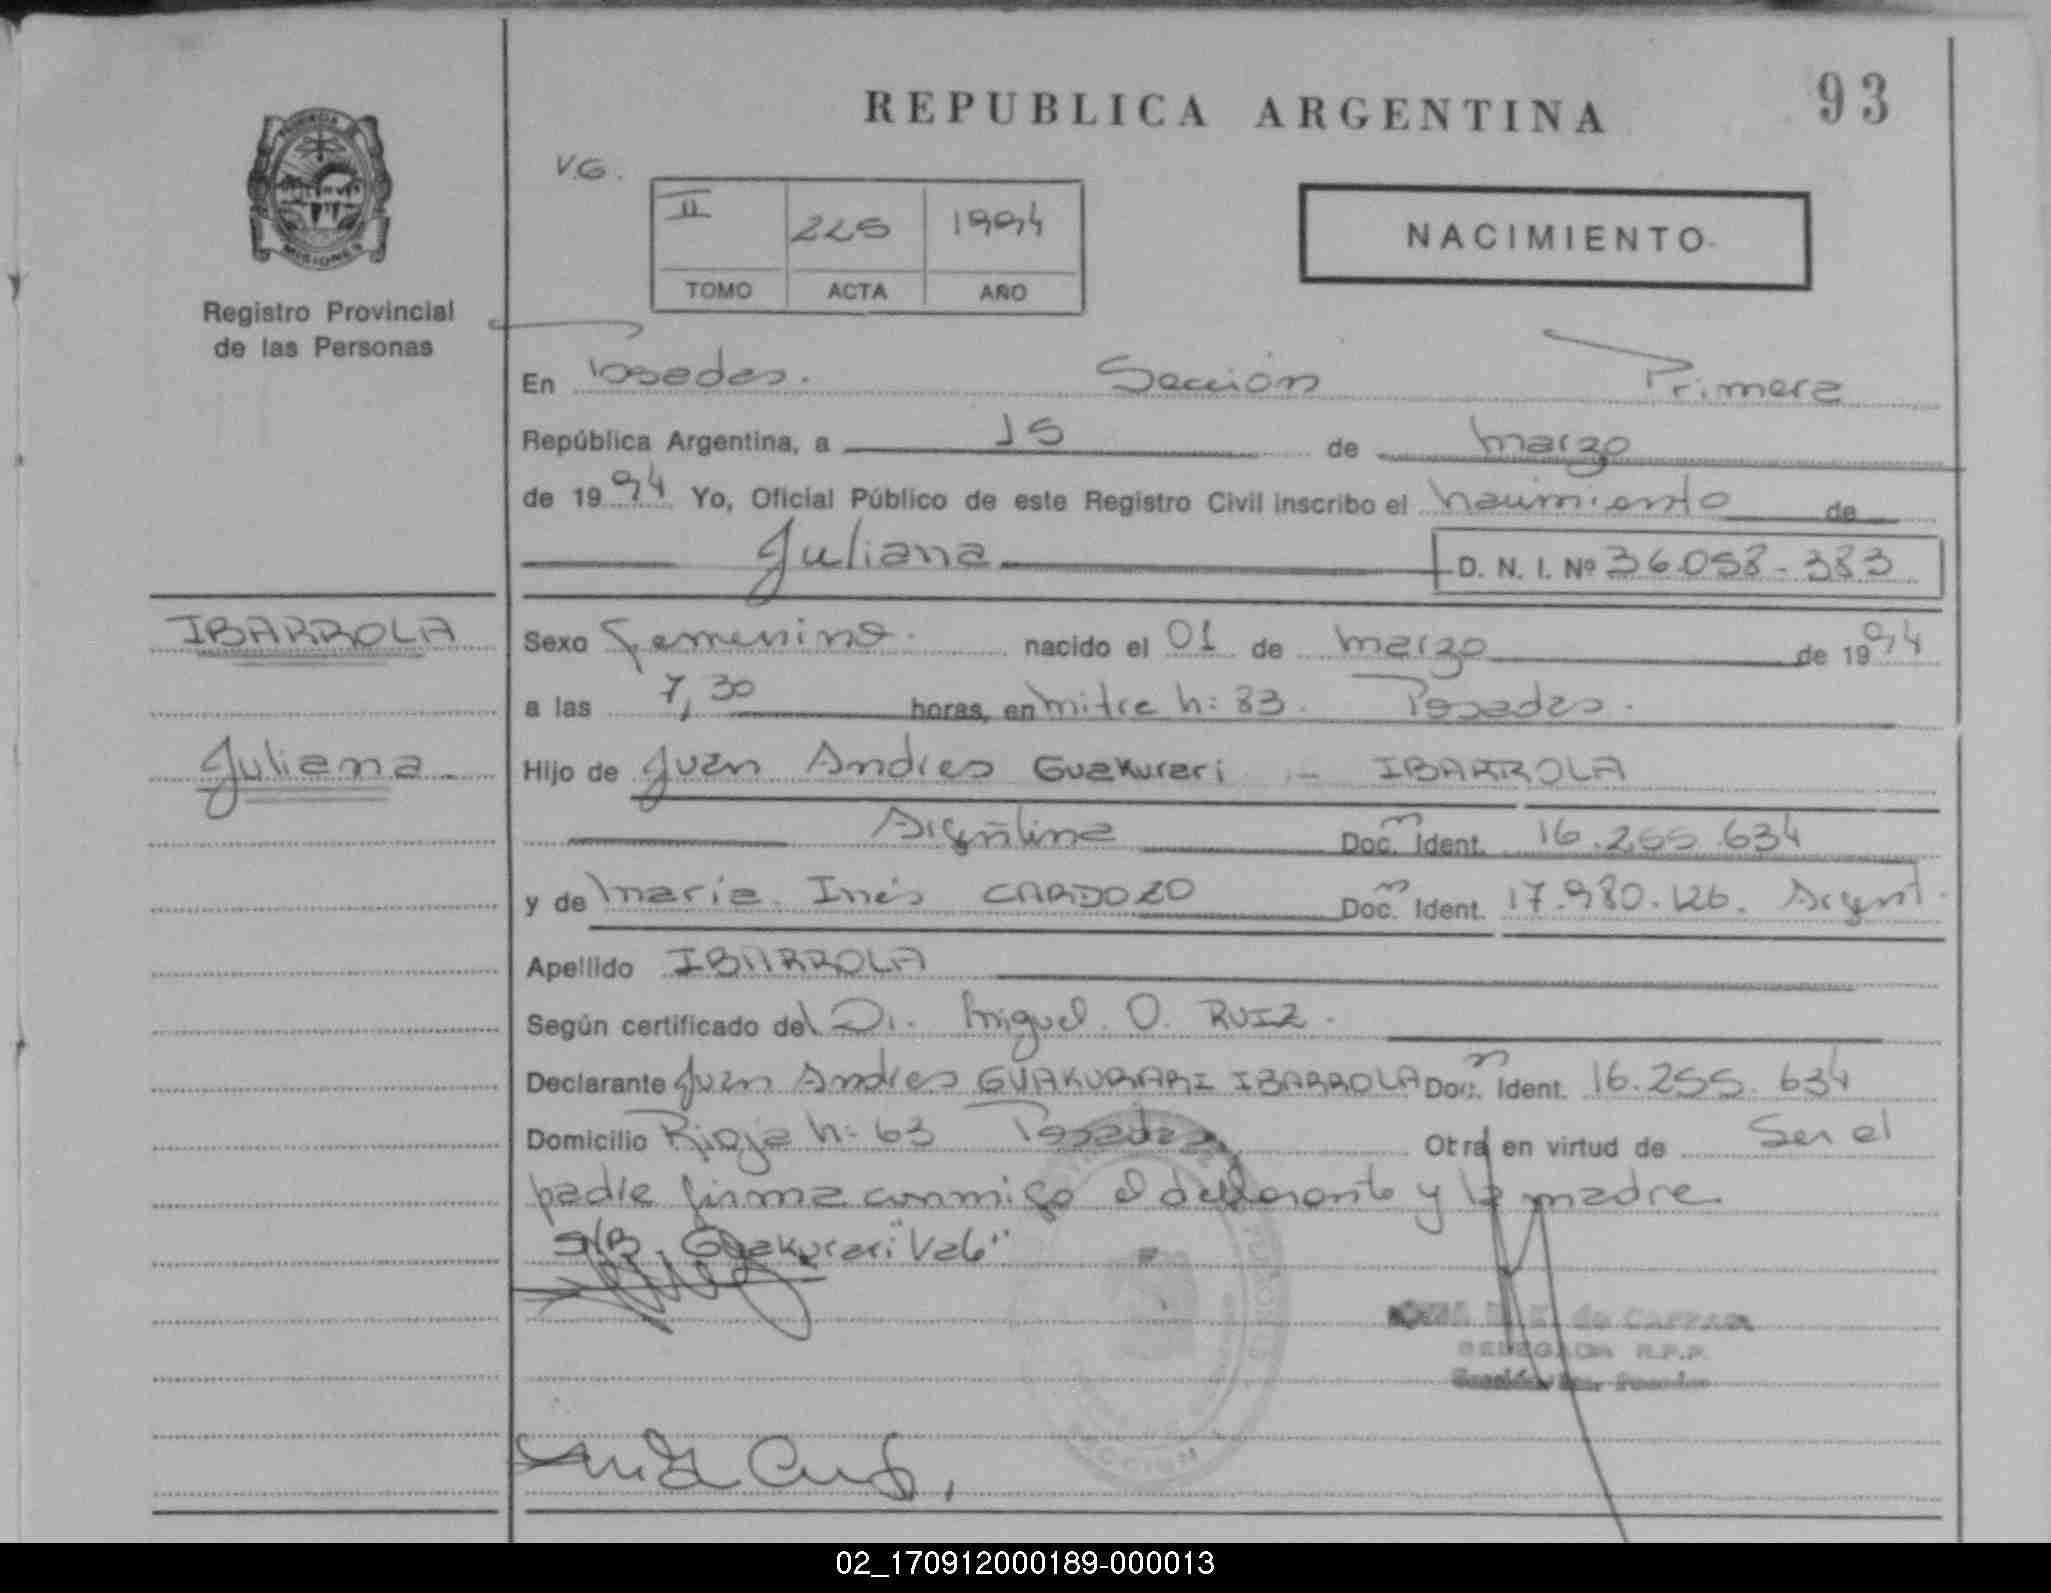 93
REPUBLICA ARGENTINA
V.G.
II 225 1994
TOMO ACTA AÑO
NACIMIENTO
PROVINCIA DE
MISIONES
Registro Provincial
de las Personas
En Posadas. Sección Primera
República Argentina, a 15 de marzo
de 1994 Yo, Oficial Público de este Registro Civil inscribo el nacimiento de
Juliana D. N. I. Nº 36.058-383
IBARROLA
Juliana
Sexo femenino. nacido el 01 de marzo de 1994
a las 7,30 horas, en mitre n: 83. Posadas.
Hijo de Juan Andres Guakurari - IBARROLA
Argentina Doc. Ident. 16.255.634
y de Maria Inés CARDOZO Doc. Ident. 17.980.126. Argent.
Apellido IBARROLA
Según certificado del Dr. Miguel O. RUIZ.
Declarante Juan Andres GUAKURARI IBARROLA Doc. Ident. 16.255.634
Domicilio Rioja n: 63 Posadas Otra en virtud de Ser el
padre firma conmigo el declarante y la madre.
S/B. Guakurari "Vale"
DELEGADA R.P.P.
SECCION
02_170912000189-000013